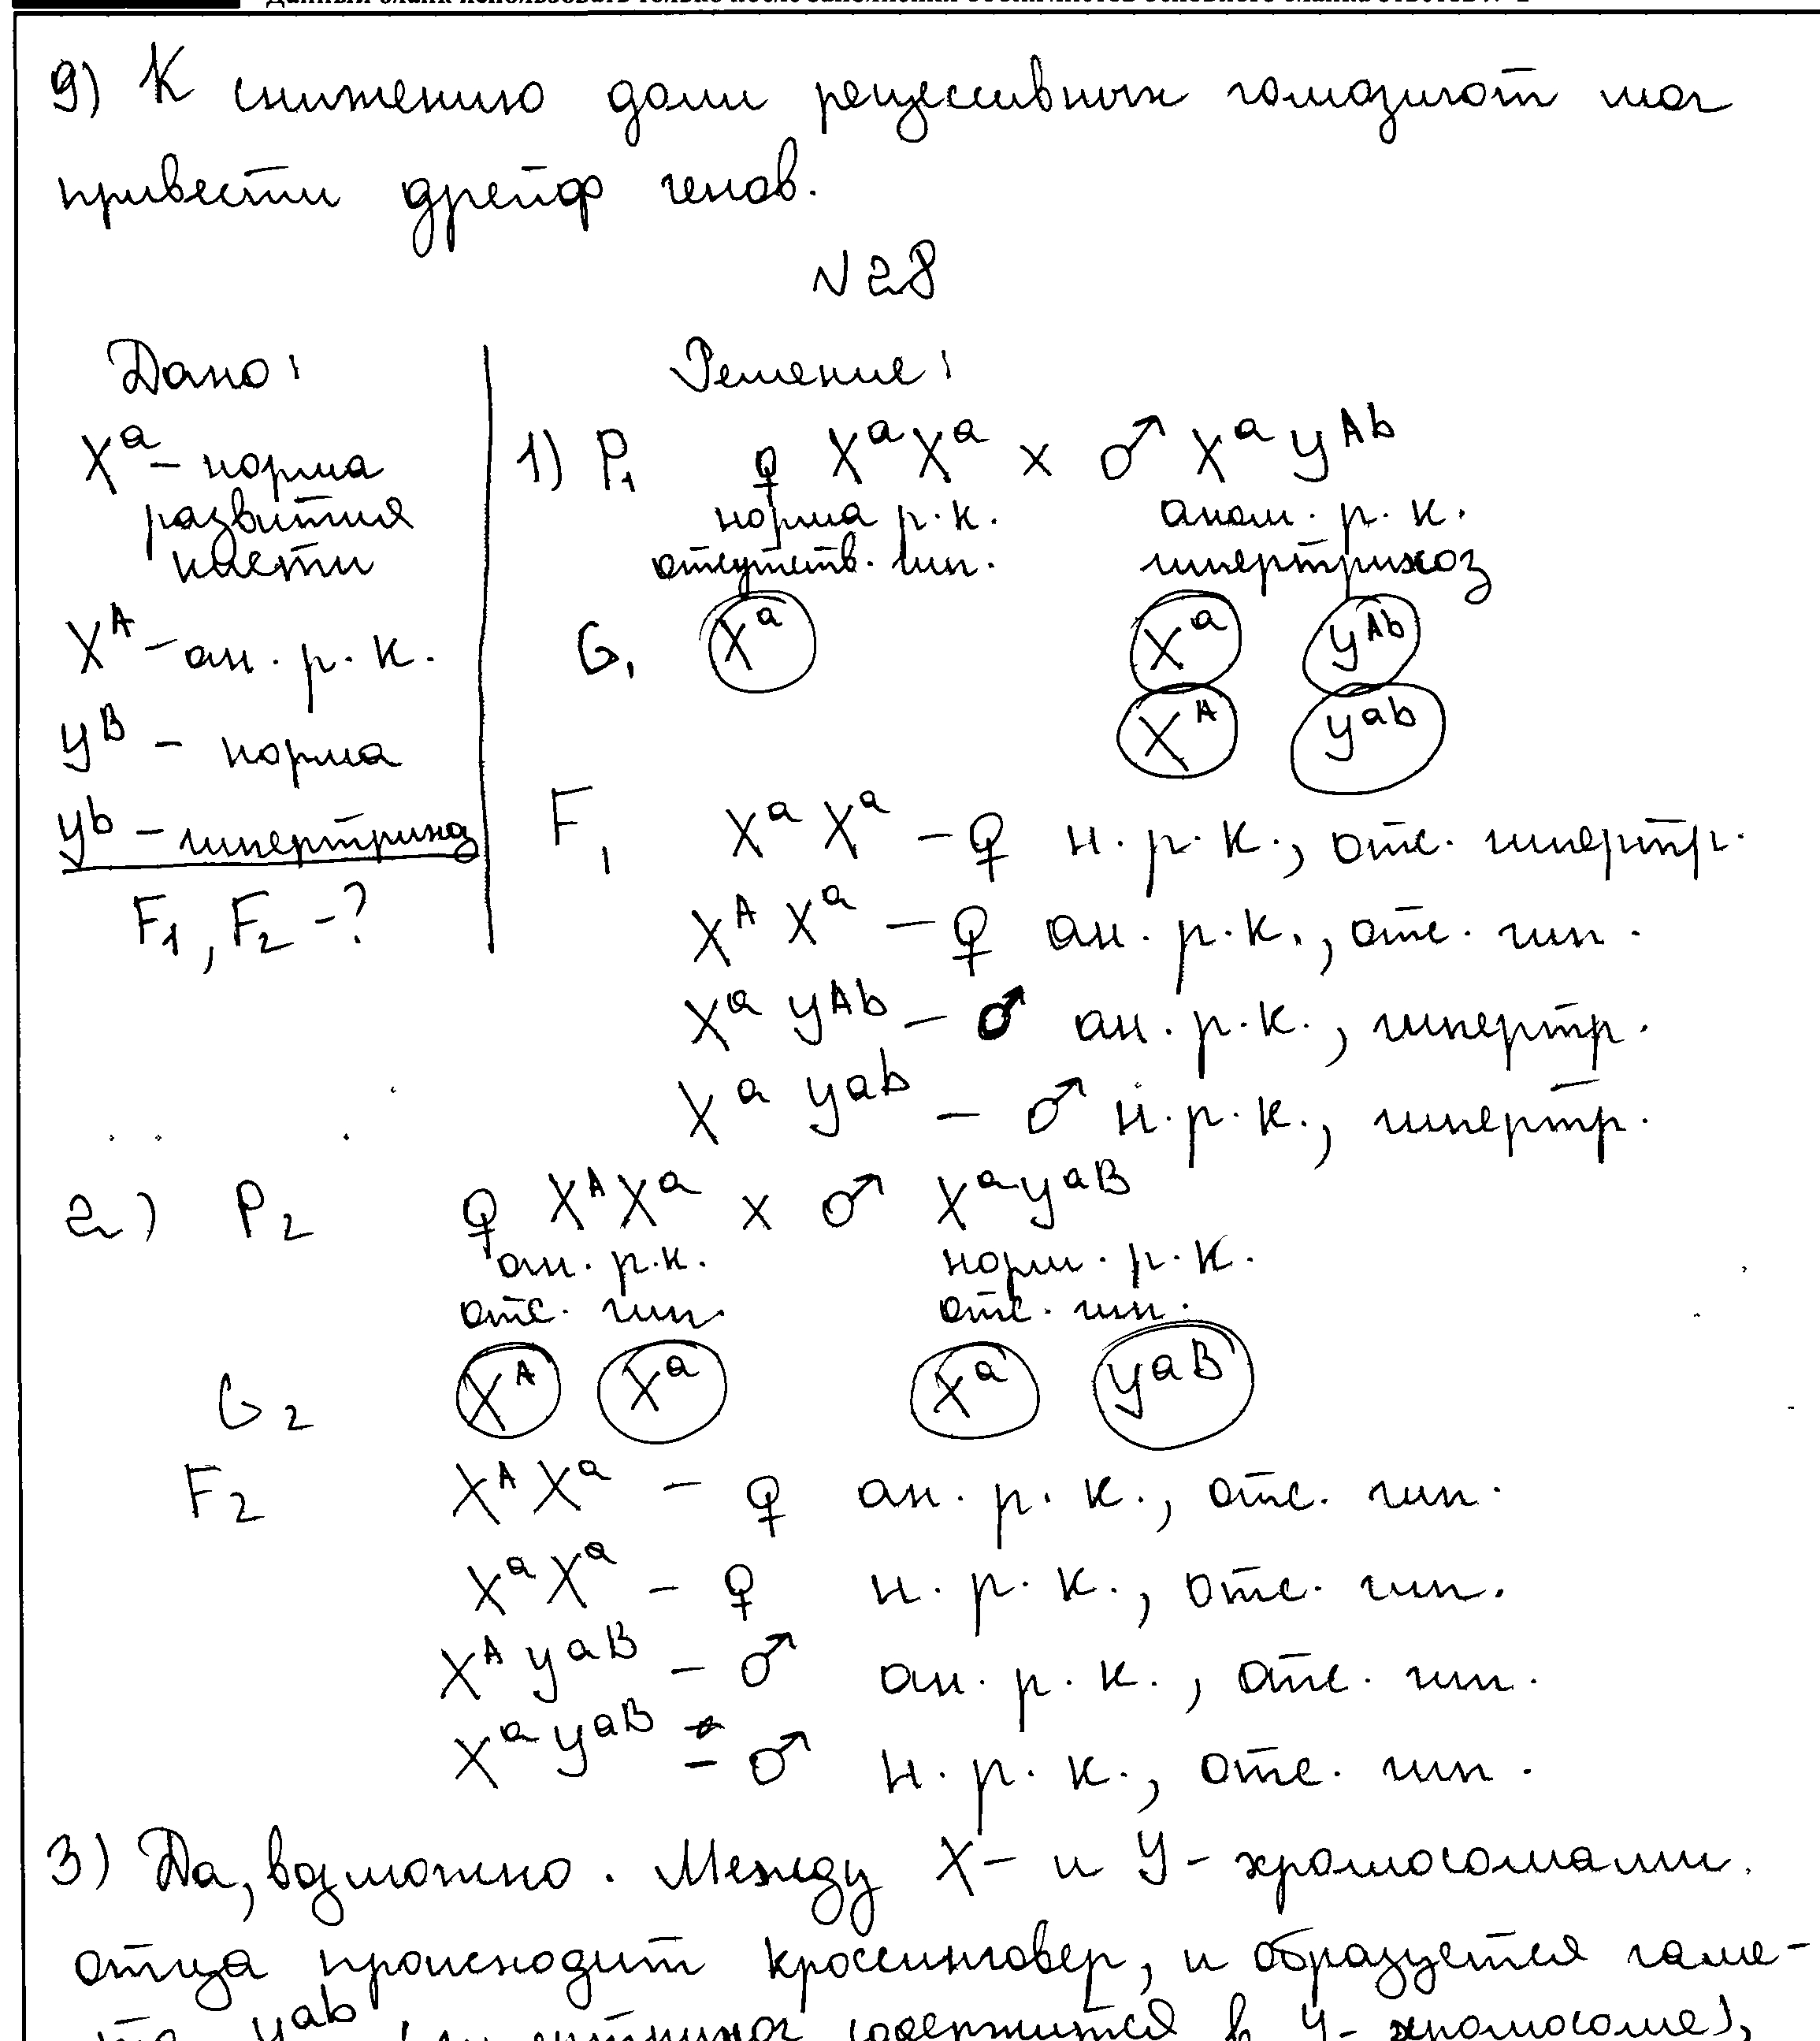 9) К снижению доли рецессивных гомозигот мог
привести дрейф генов.
N28
Дано:
Xᵃ – норма
развития
кисти
Xᴬ – ан. р. к.
yᴮ – норма
yᵇ – гипертрихоз
F₁, F₂ – ?
Решение:
1) P₁ ♀ XᵃXᵃ x ♂ Xᵃ yᴬᵇ
норма р. к. аном. р. к.
отсутств. гип. гипертрихоз
G₁ Xᵃ Xᵃ yᴬᵇ
Xᴬ yᵃᵇ
F₁ Xᵃ Xᵃ – ♀ н. р. к., отс. гипертр.
Xᴬ Xᵃ – ♀ ан. р. к., отс. гип.
Xᵃ yᴬᵇ – ♂ ан. р. к., гипертр.
Xᵃ yᵃᵇ – ♂ н. р. к., гипертр.
2) P₂ ♀ XᴬXᵃ x ♂ Xᵃyᵃᴮ
ан. р. к. норм. р. к.
отс. гип. отс. гип.
G₂ Xᴬ Xᵃ Xᵃ yᵃᴮ
F₂ XᴬXᵃ – ♀ ан. р. к., отс. гип.
XᵃXᵃ – ♀ н. р. к., отс. гип.
Xᴬyᵃᴮ – ♂ ан. р. к., отс. гип.
Xᵃyᵃᴮ – ♂ н. р. к., отс. гип.
3) Да, возможно. Между X- и У-хромосомами
отца происходит кроссинговер, и образуется гаме-
та yᵃᵇ содержится в У-хромосоме),